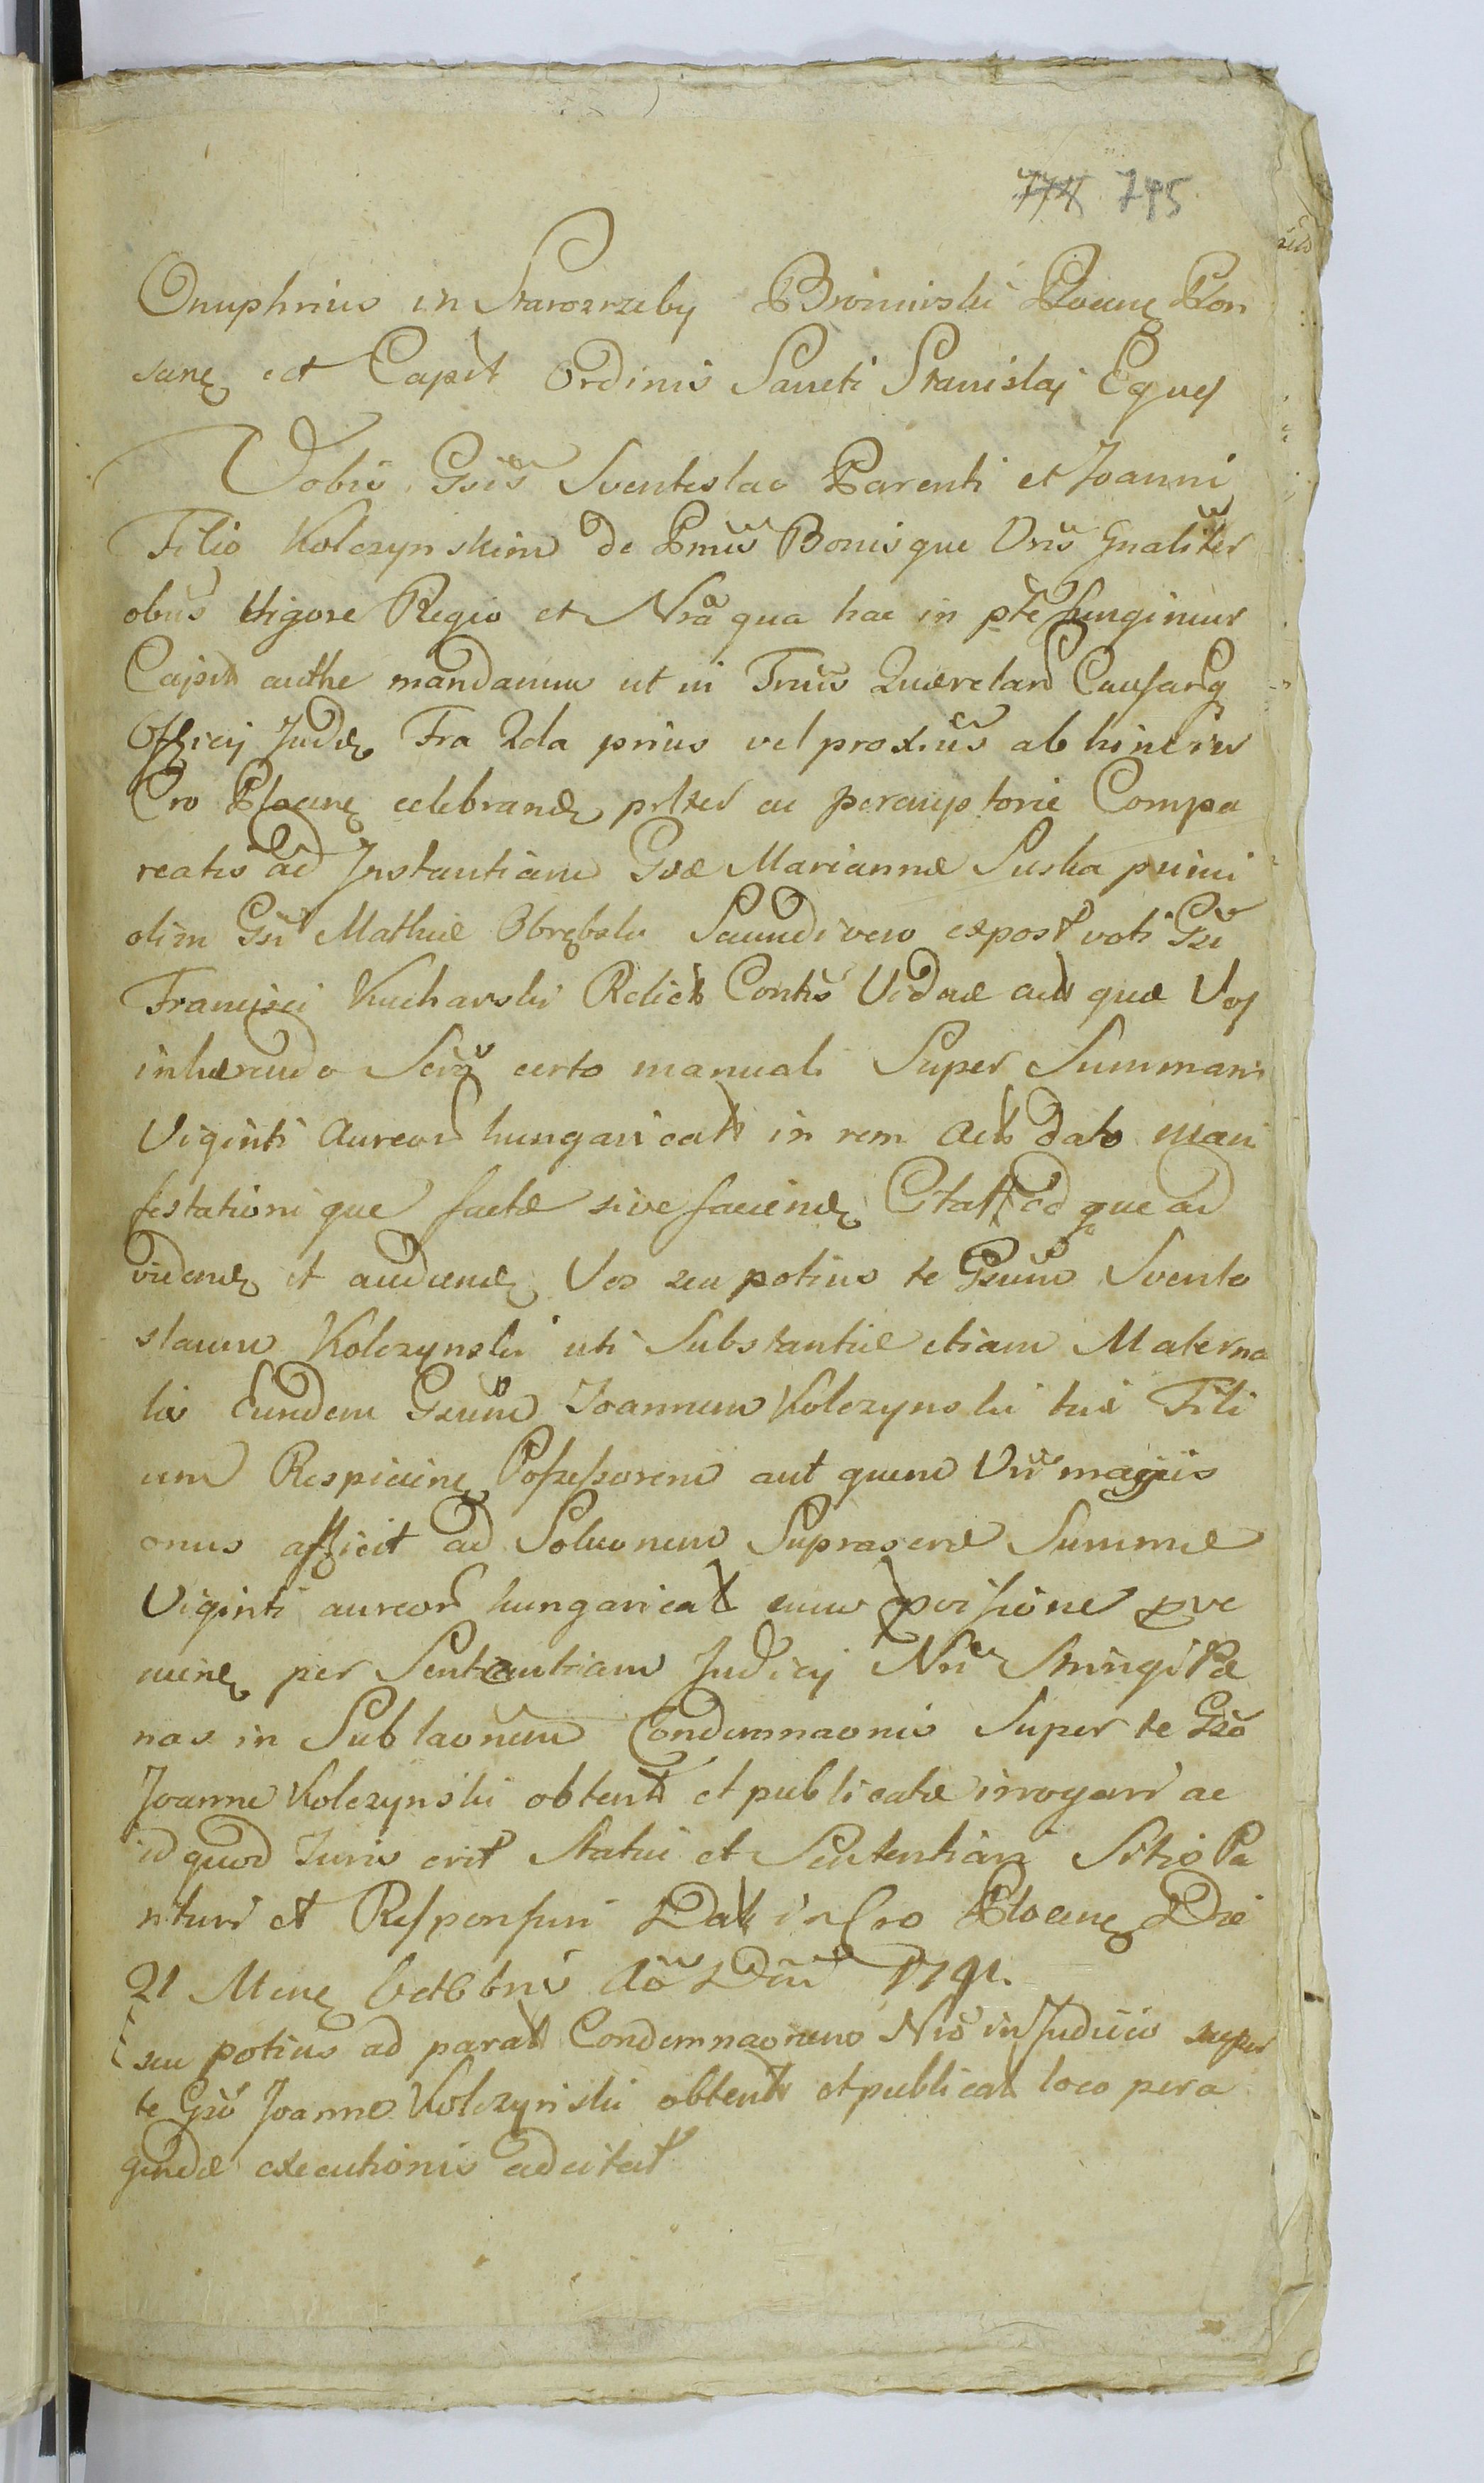 774 745
Onuphrius in Starozrzeby Bromirski Plocenę Plon
sanę ect Capit Ordinis Sancti Stanislaj Eques
Vobis Gsis Sventoslao Parenti et Joanni
Filio Kolczynskim de Pmis Bonisque Vris Gnaliter
obus Vigore Regio et Nra qua hac in pte fungimur
Capit authe mandamus ut in Trnis Querelarũ Causarq
Officij Judię Fra 2da prius vel proxius ab hinc in
Cro Plocenę celebrandę prlter ac peremptorie Compa
reatis ad Instantiam Gsæ Mariannæ Suska primi
olim Gsi Mathiæ Obrębski Secundi vero expost voti Gsi
Francisci Kucharski Relict Contis Viduæ act quæ Vos
inhærendo Scrip certo manuali Super Summam
Viginti Aureorũ hungaricat in rem Act dato mani
festationi que factæ sive faciendę Citat ad que ad
videndę et audiendę Vos seu potius te Gsum Svento
slaum Kolczynski uti Substantiæ etiam Materna
lis Eundem Gsum Joannem Kolczynski tui Fili
um Respicienę Possessorem aut quem Vru magis
onus afficit ad Soluonem Suprascræ Summæ
Viginti aureorũ hungaricat cum provisione prove
nienę per Sententiam Judicij Nri Stringi Pæ
nas in Sublaonem Condemnaonis Super te Gso
Joanne Kolczynski obtent et publicatæ irrogari ac
id quod Juris erit Statui et Sententiari Sitis Pa
rituri et Responsuri Dat in Cro Plocenę Die
21 Mensę Octbris Ao Dni 1791.
seu potius ad parat Condemnaonem Nro in Judicio super
te Gso Joanne Kolczynski obtent et publicat loco pera
gendæ executionis adcitat